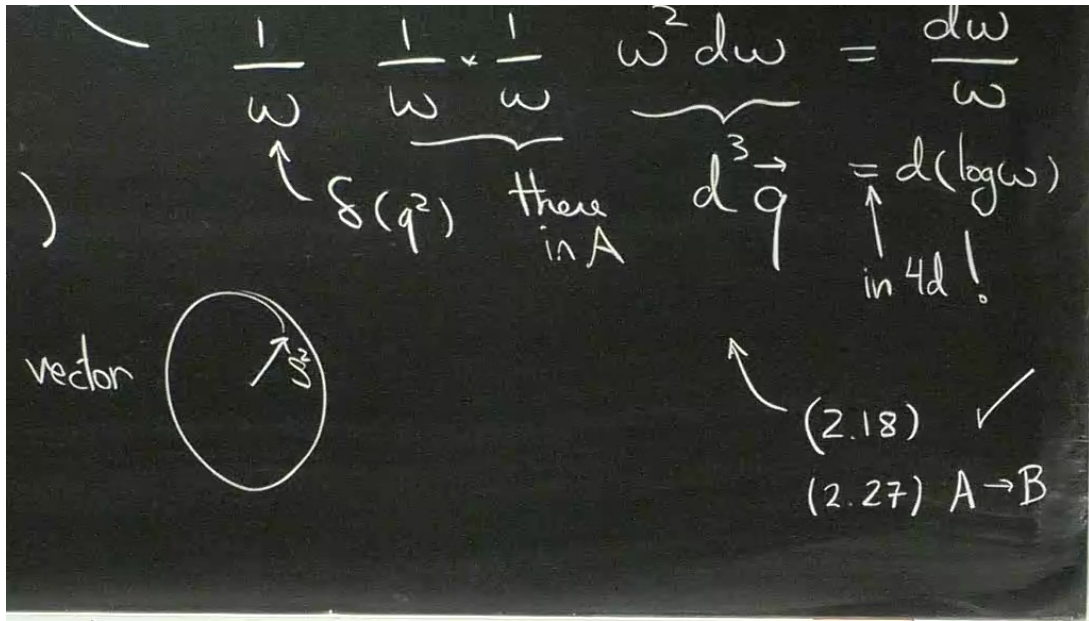 1/ω 1/ω × 1/ω ω² dω = dω/ω
δ(q²) there in A d³q⃗ = d(log ω)
in 4d!
vector S²
(2.18) ✓
(2.27) A → B